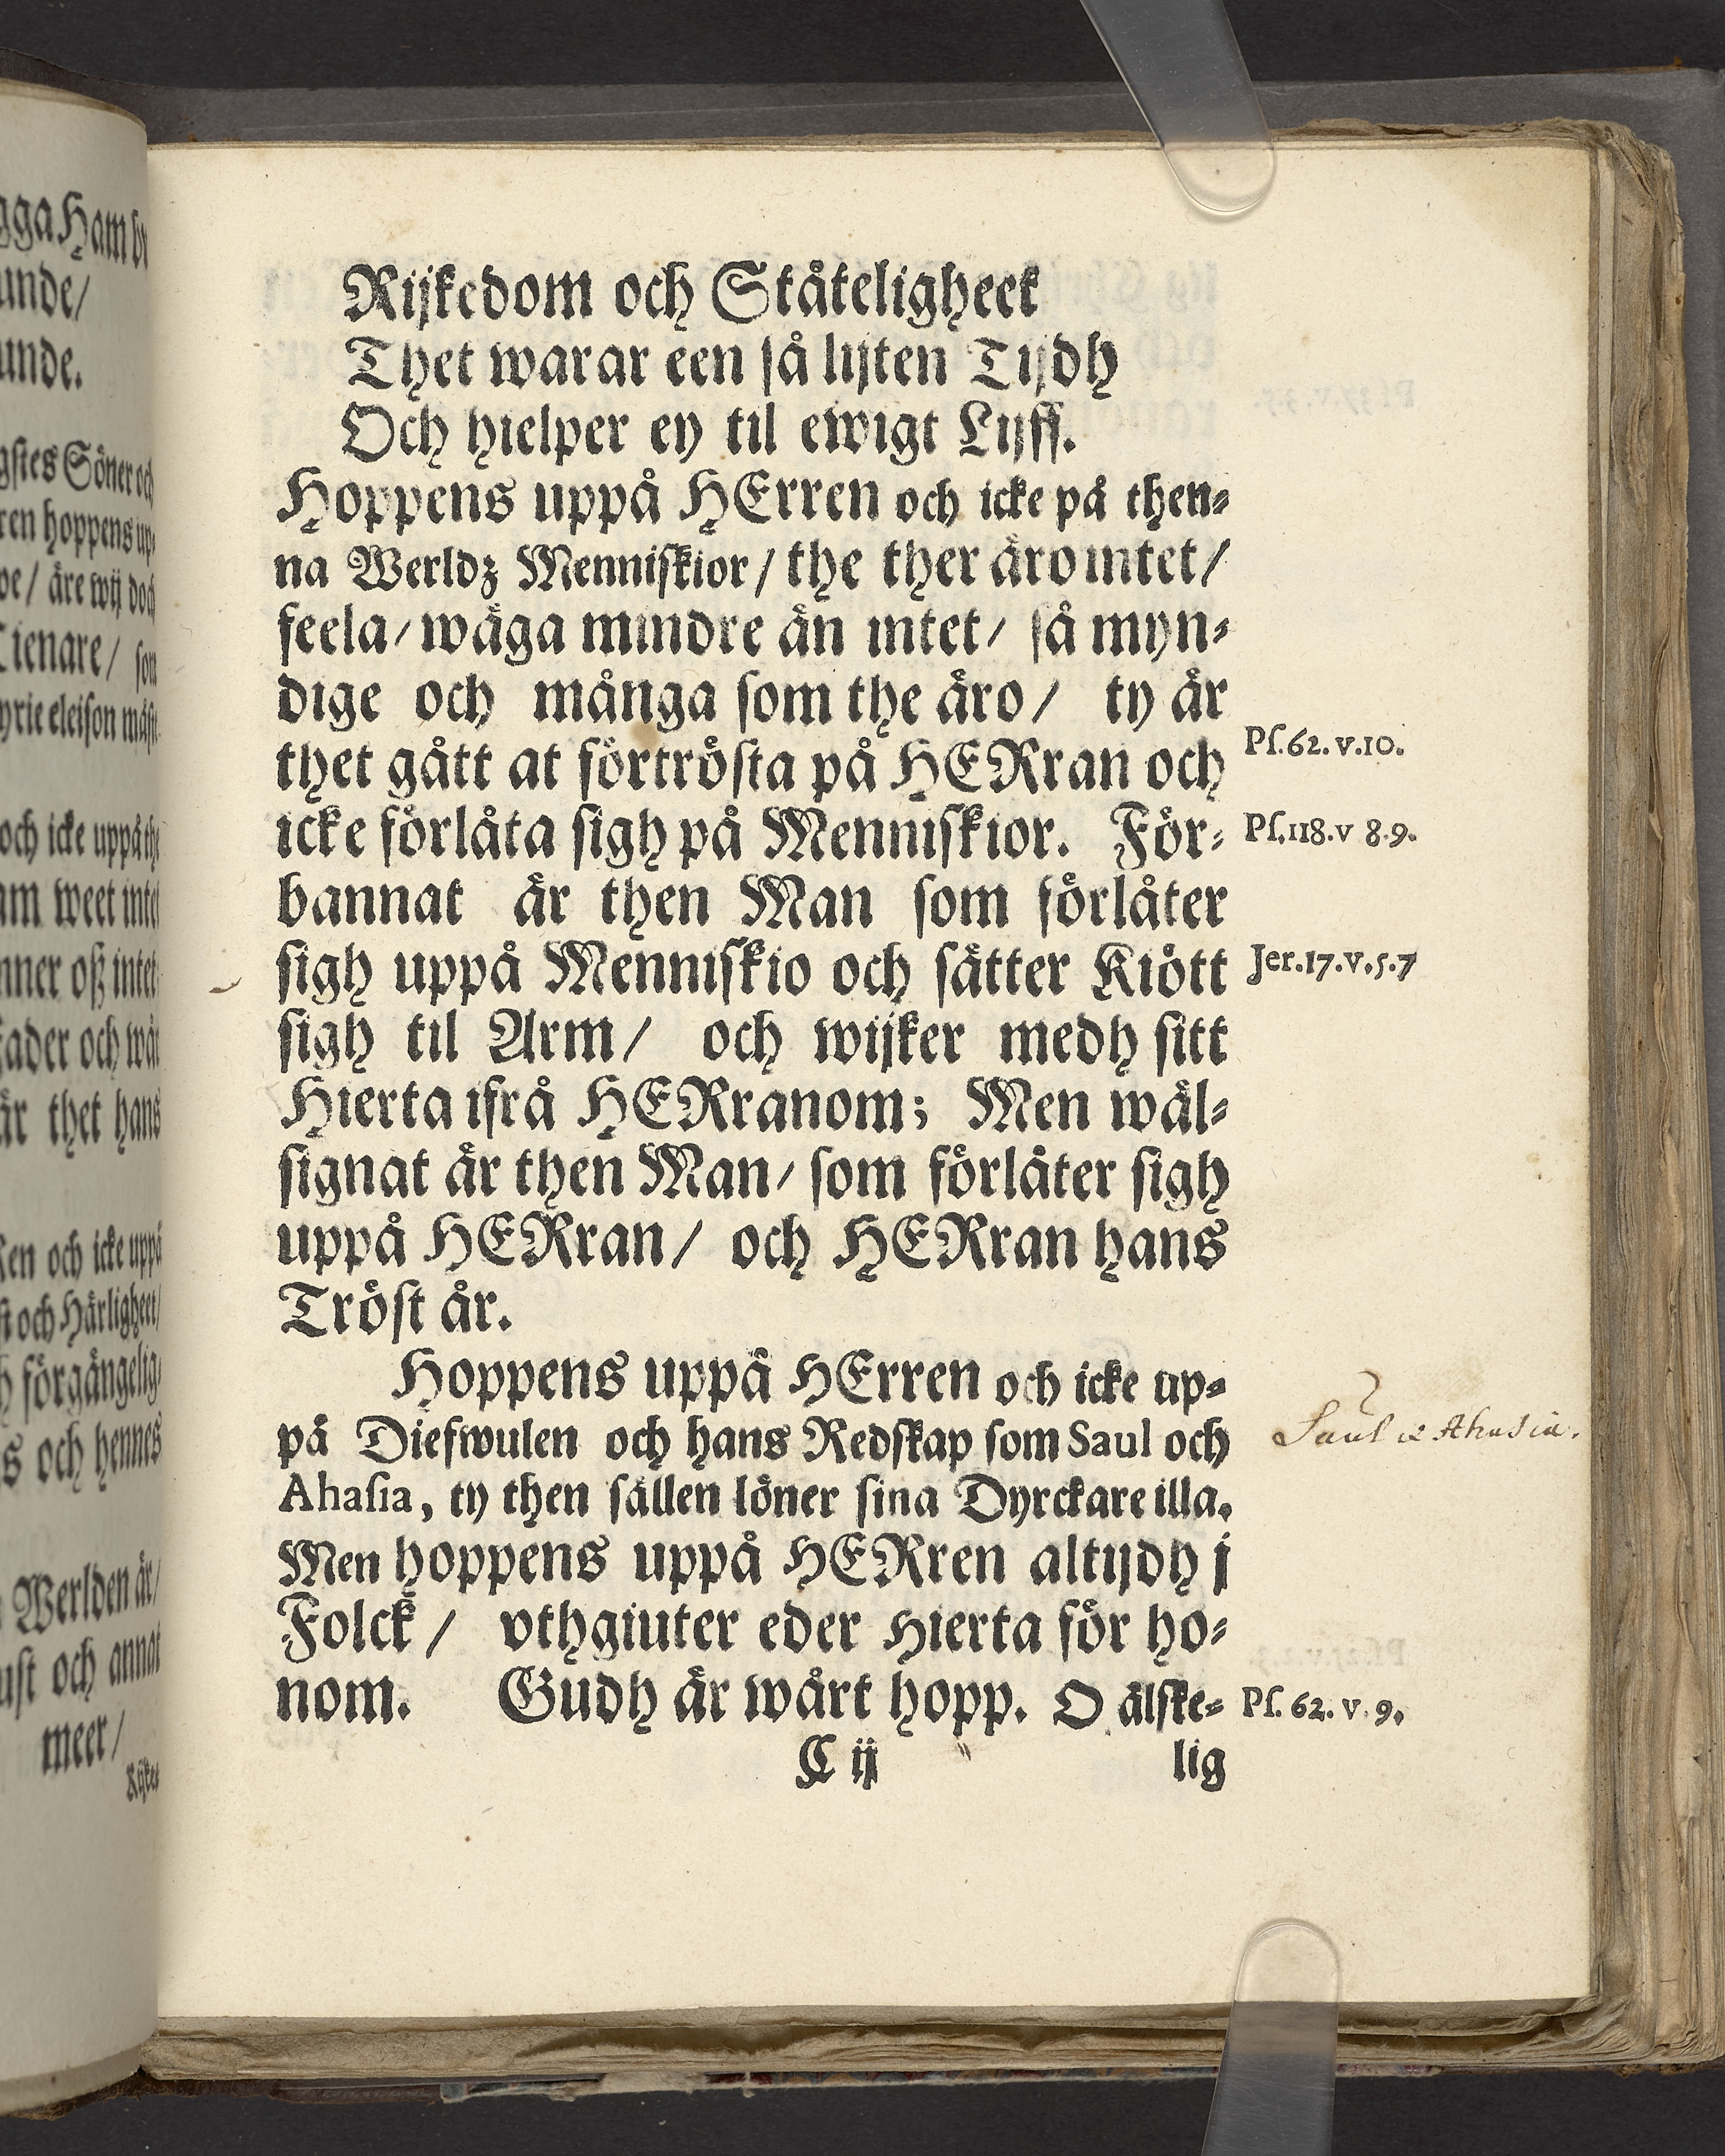 Rijkedom och Ståteligheet
Thet warar een så lijten Tijdh
Och hielper ey til ewigt Lijff.
Hoppens uppå HErren och icke på then-
na Werldz Menniskior / the ther äro intet /
feela / wäga mindre än intet / så myn-
dige och många som the äro / ty är
thet gått at förtrösta på HERran och
Ps. 62. v. 10.
icke förlåta sigh på Menniskior. För-
Ps. 118. v 8. 9.
bannat är then Man som förlåter
sigh uppå Menniskio och sätter Kiött
Jer. 17. v. 5. 7
sigh til Arm / och wijker medh sitt
Hierta ifrå HERranom; Men wäl-
signat är then Man / som förlåter sigh
uppå HERran / och HERran hans
Tröst är.
Hoppens uppå HErren och icke up-
på Diefwulen och hans Redskap som Saul och
Saul & Ahasia.
Ahasia, ty then sällen löner sina Dyrckare illa.
Men hoppens uppå HERren altijdh j
Folck / vthgiuter eder Hierta för ho-
nom. Gudh är wårt hopp. O älske-
Ps. 62. v. 9.
C ij
lig
gga Ham
unde /
unde.
gstes Söner och
ren hoppens up-
/ äre wij doch
Tienare / som
yrie eleison
och icke uppå the
am weet intet
nner oß intet
fader och wår
är thet hans
Ren och icke uppå
st och Härligheet /
h förgängelig
s och hennes
Werlden är /
ust och annat
meer /
Rijke